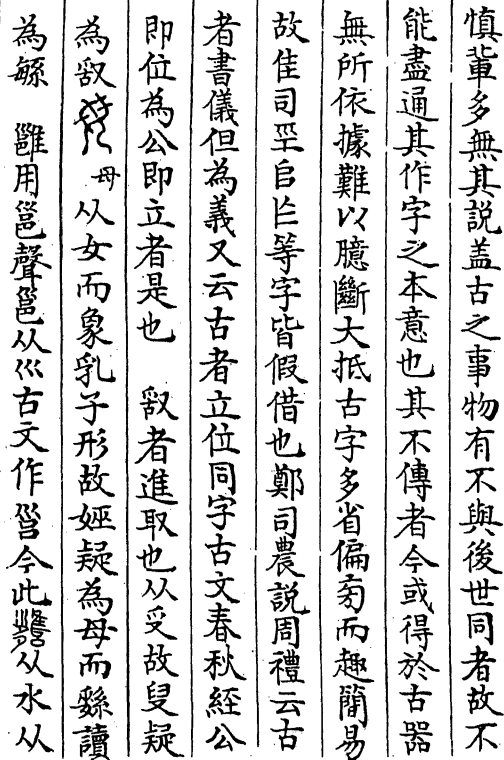 慎軰多無其説盖古之事物有不與後世同者故不
能盡通其作字之本意也其不傳者今或得於古器
無所依據難以臆斷大抵古字多省偏旁而趣簡易
故隹司𠀑㠯亾等字皆假借也鄭司農説周禮云古
者書儀但為義又云古者立位同字古文春秋經公
即位為公即立者是也　㕡者進取也从受故𠬧疑
為㕡　母从女而象乳子形故娙疑為母而繇讀
為䋣　雝用邕聲邕从巛古文作𦊃今此从水从